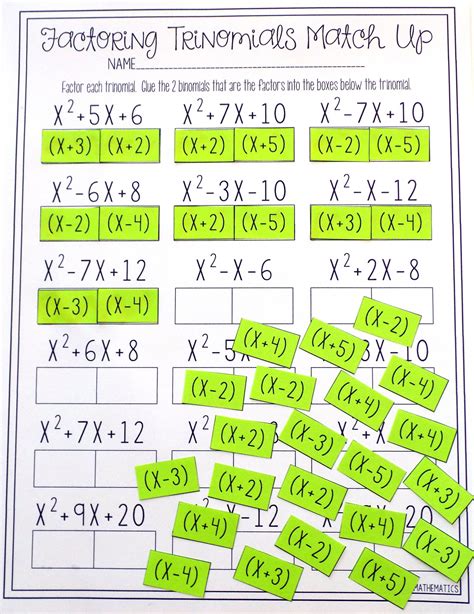 Factoring Trinomials Match Up
NAME
Factor each trinomial. Glue the 2 binomials that are the factors into the boxes below the trinomial.
X²+5X+6 X²+7X+10 X²-7X+10
(X+3) (X+2) (X+2) (X+5) (X-2) (X-5)
X²-6X+8 X²-3X-10 X²-X-12
(X-2) (X-4) (X+2) (X-5) (X+3) (X-4)
X²-7X+12 X²-X-6 X²+2X-8
(X-3) (X-4)
(X-2)
(X+4) (X+5)
X²+6X+8 X²-5X X-10
(X-2) (X-2) (X+4) (X-4)
X²+7X+12 (X+2) (X-3) (X+4)
(X-3) (X+2) (X+2) (X-5) (X+3)
X²+9X+20 (X+4) X-12 (X-2) (X+4) (X-3)
(X-4) (X+3) (X+5)
MATHEMATICS